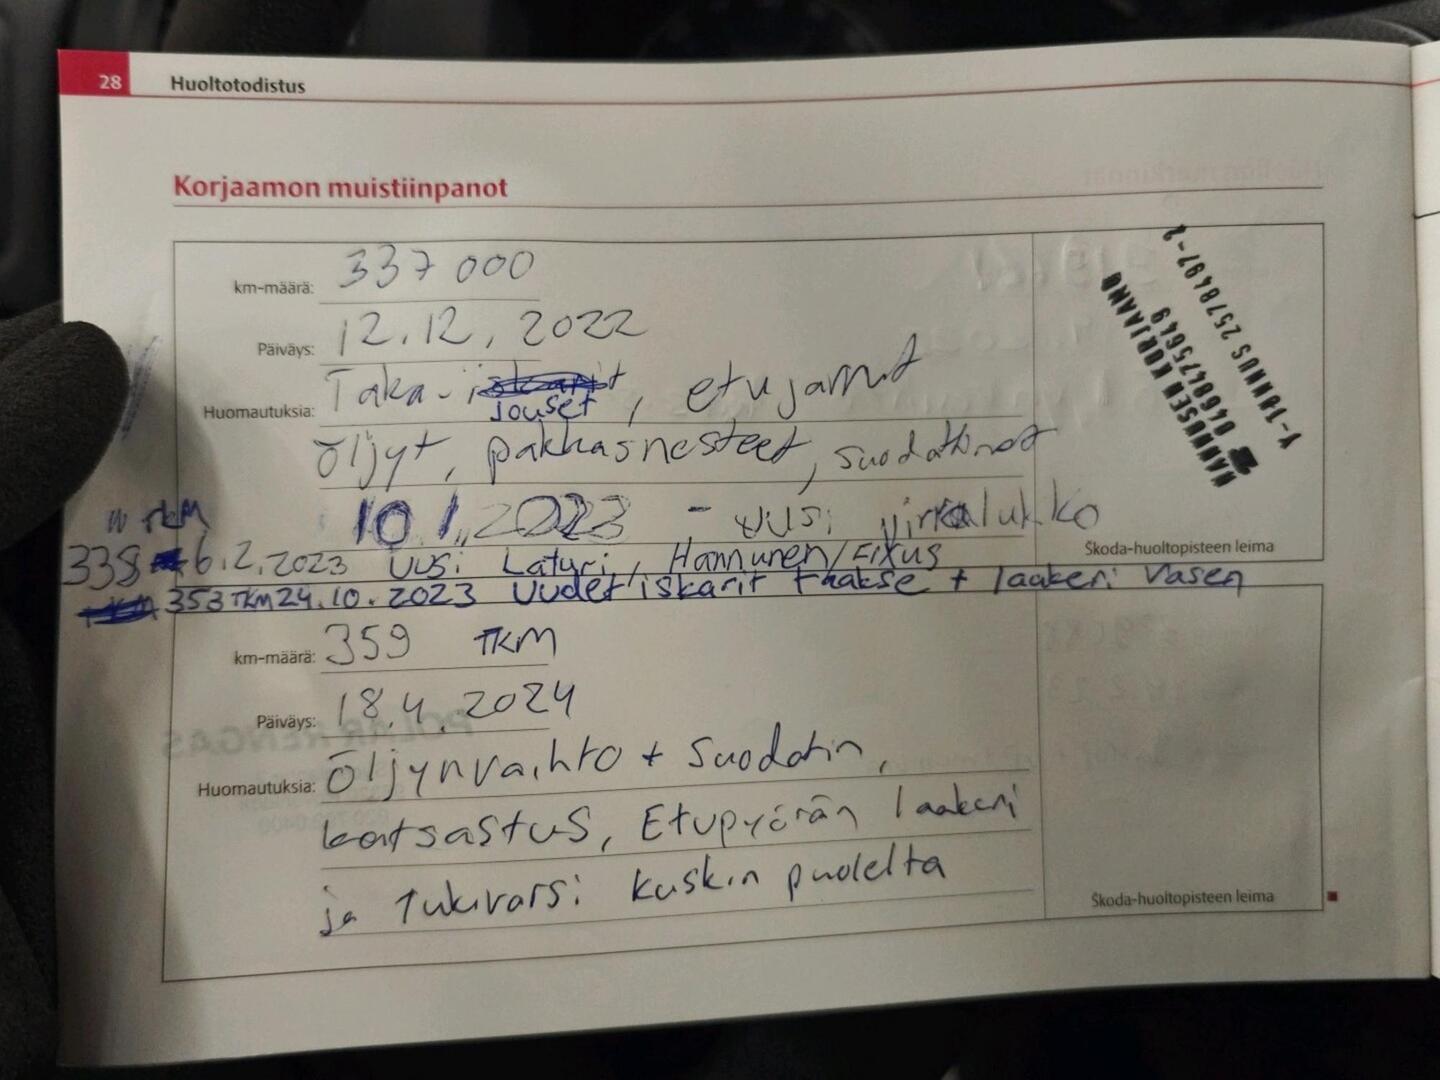 28 Huoltotodistus
Korjaamon muistiinpanot
km-määrä: 337 000
Päiväys: 12.12.2022
Huomautuksia: Taka-jouset, etujarrut
öljyt, pakkasnesteet, suodattimet
10.1.2023 - uusi virtalukko
338 TKM 6.2.2023 uusi Laturi, Hannunen/Fixus
353 TKM 24.10.2023 Uudet iskarit taakse + laakeri vasen
HANNUSEN KORJAAMO
0468475649
Y-TUNNUS 2578497-2
Škoda-huoltopisteen leima
km-määrä: 359 TKM
Päiväys: 18.4.2024
Huomautuksia: Öljynvaihto + suodatin,
katsastus, Etupyörän laakeri
ja Tukivarsi kuskin puolelta
Škoda-huoltopisteen leima